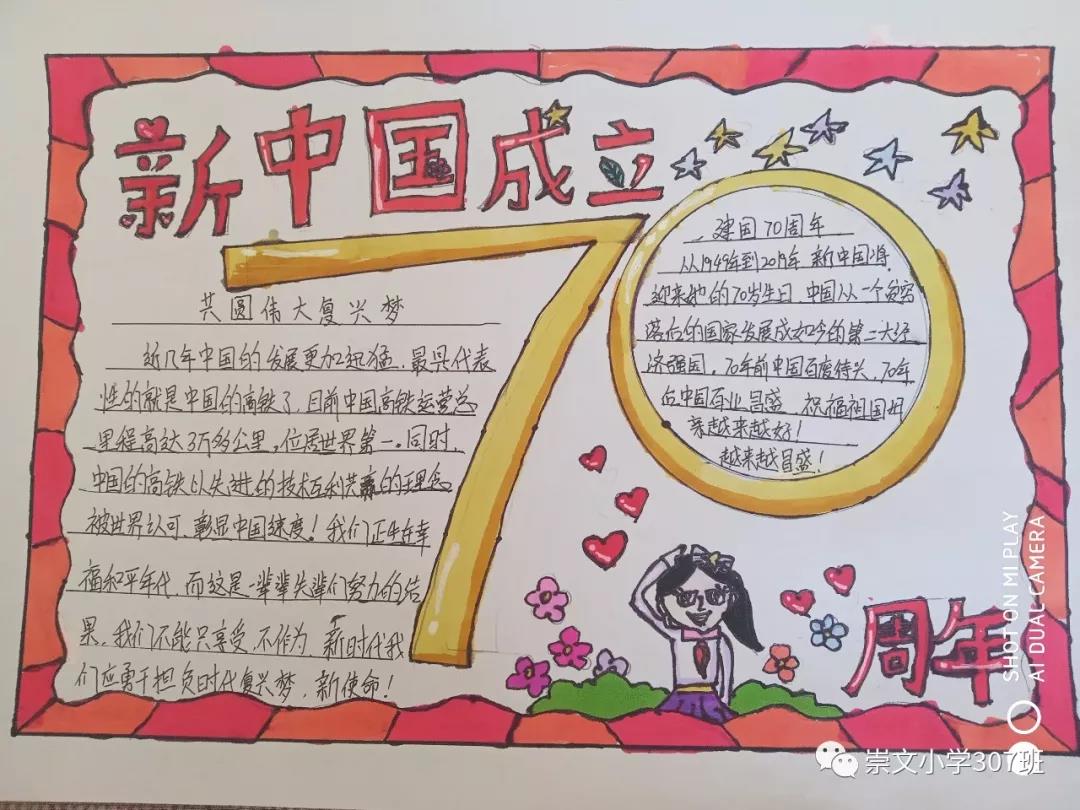 新中国成立
70
周年
共圆伟大复兴梦
近几年中国的发展更加迅猛.最具代表
性的就是中国的高铁了.目前中国高铁运营总
里程高达3万多公里,位居世界第一.同时,
中国的高铁以先进的技术互利共赢的理念
被世界认可,彰显中国速度!我们正生在幸
福和平年代,而这是一辈辈先辈们努力的结
果,我们不能只享受,不作为,新时代我
们应勇于担负时代复兴梦,新使命!
建国70周年
从1949年到2019年,新中国将
迎来她的70岁生日,中国从一个贫穷
落后的国家发展成如今的第二大经
济强国,70年前中国百废待兴,70年
后中国百业昌盛,祝福祖国母
亲越来越好!
越来越昌盛!
SHOT ON MI PLAY
AI DUAL CAMERA
崇文小学307班